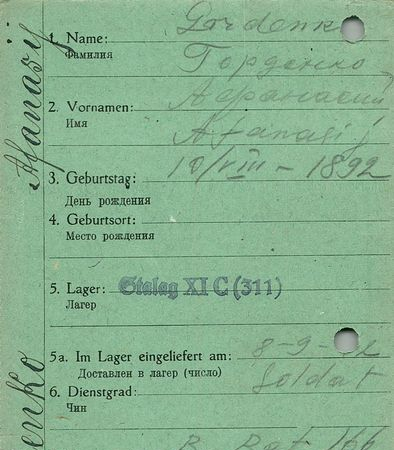 1. Name: Gordenko
Фамилия Горденко
2. Vornamen: Афанасий
Имя Afanasij
3. Geburtstag: 10/VIII – 1892
День рождения
4. Geburtsort:
Место рождения
5. Lager: Stalag XI C (311)
Лагер
5a. Im Lager eingeliefert am: 8-9-
Доставлен в лагер (число)
6. Dienstgrad: Soldat
Чин
Afanasy
enko